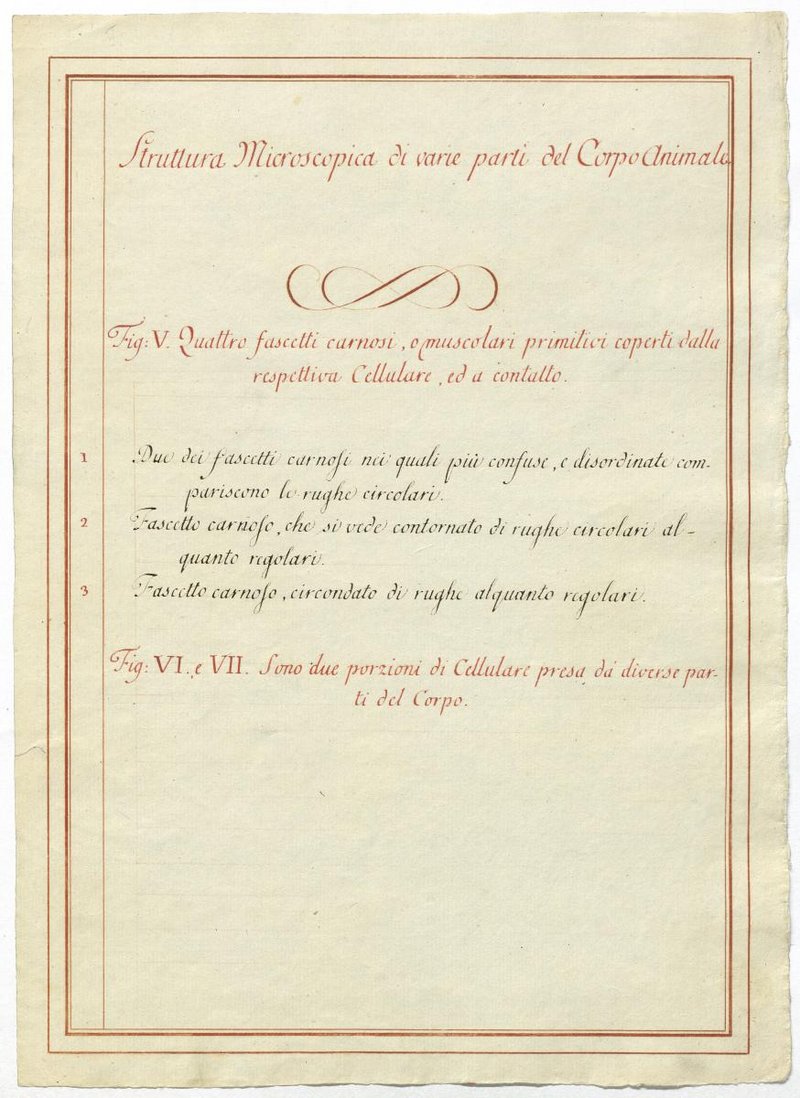 Struttura Microscopica di varie parti del Corpo Animale
Fig: V. Quattro fascetti carnosi, o muscolari primitivi coperti dalla
respettiva Cellulare, ed a contatto.
1 Due dei fascetti carnosi nei quali più confuse, e disordinate com-
pariscono le rughe circolari.
2 Fascetto carnoso, che si vede contornato di rughe circolari al-
quanto regolari.
3 Fascetto carnoso, circondato di rughe alquanto regolari.
Fig: VI. e VII. Sono due porzioni di Cellulare presa da diverse par-
ti del Corpo.